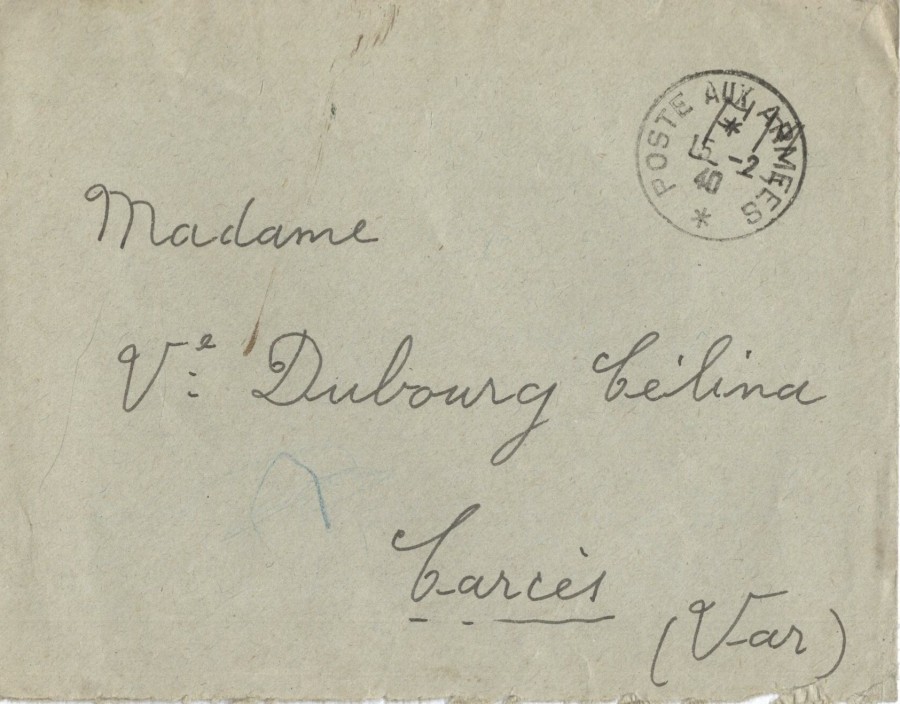 POSTE AUX ARMÉES
*
15 -2
40
*
Madame
Vᵉ Dubourg Célina
Carcès
(Var)